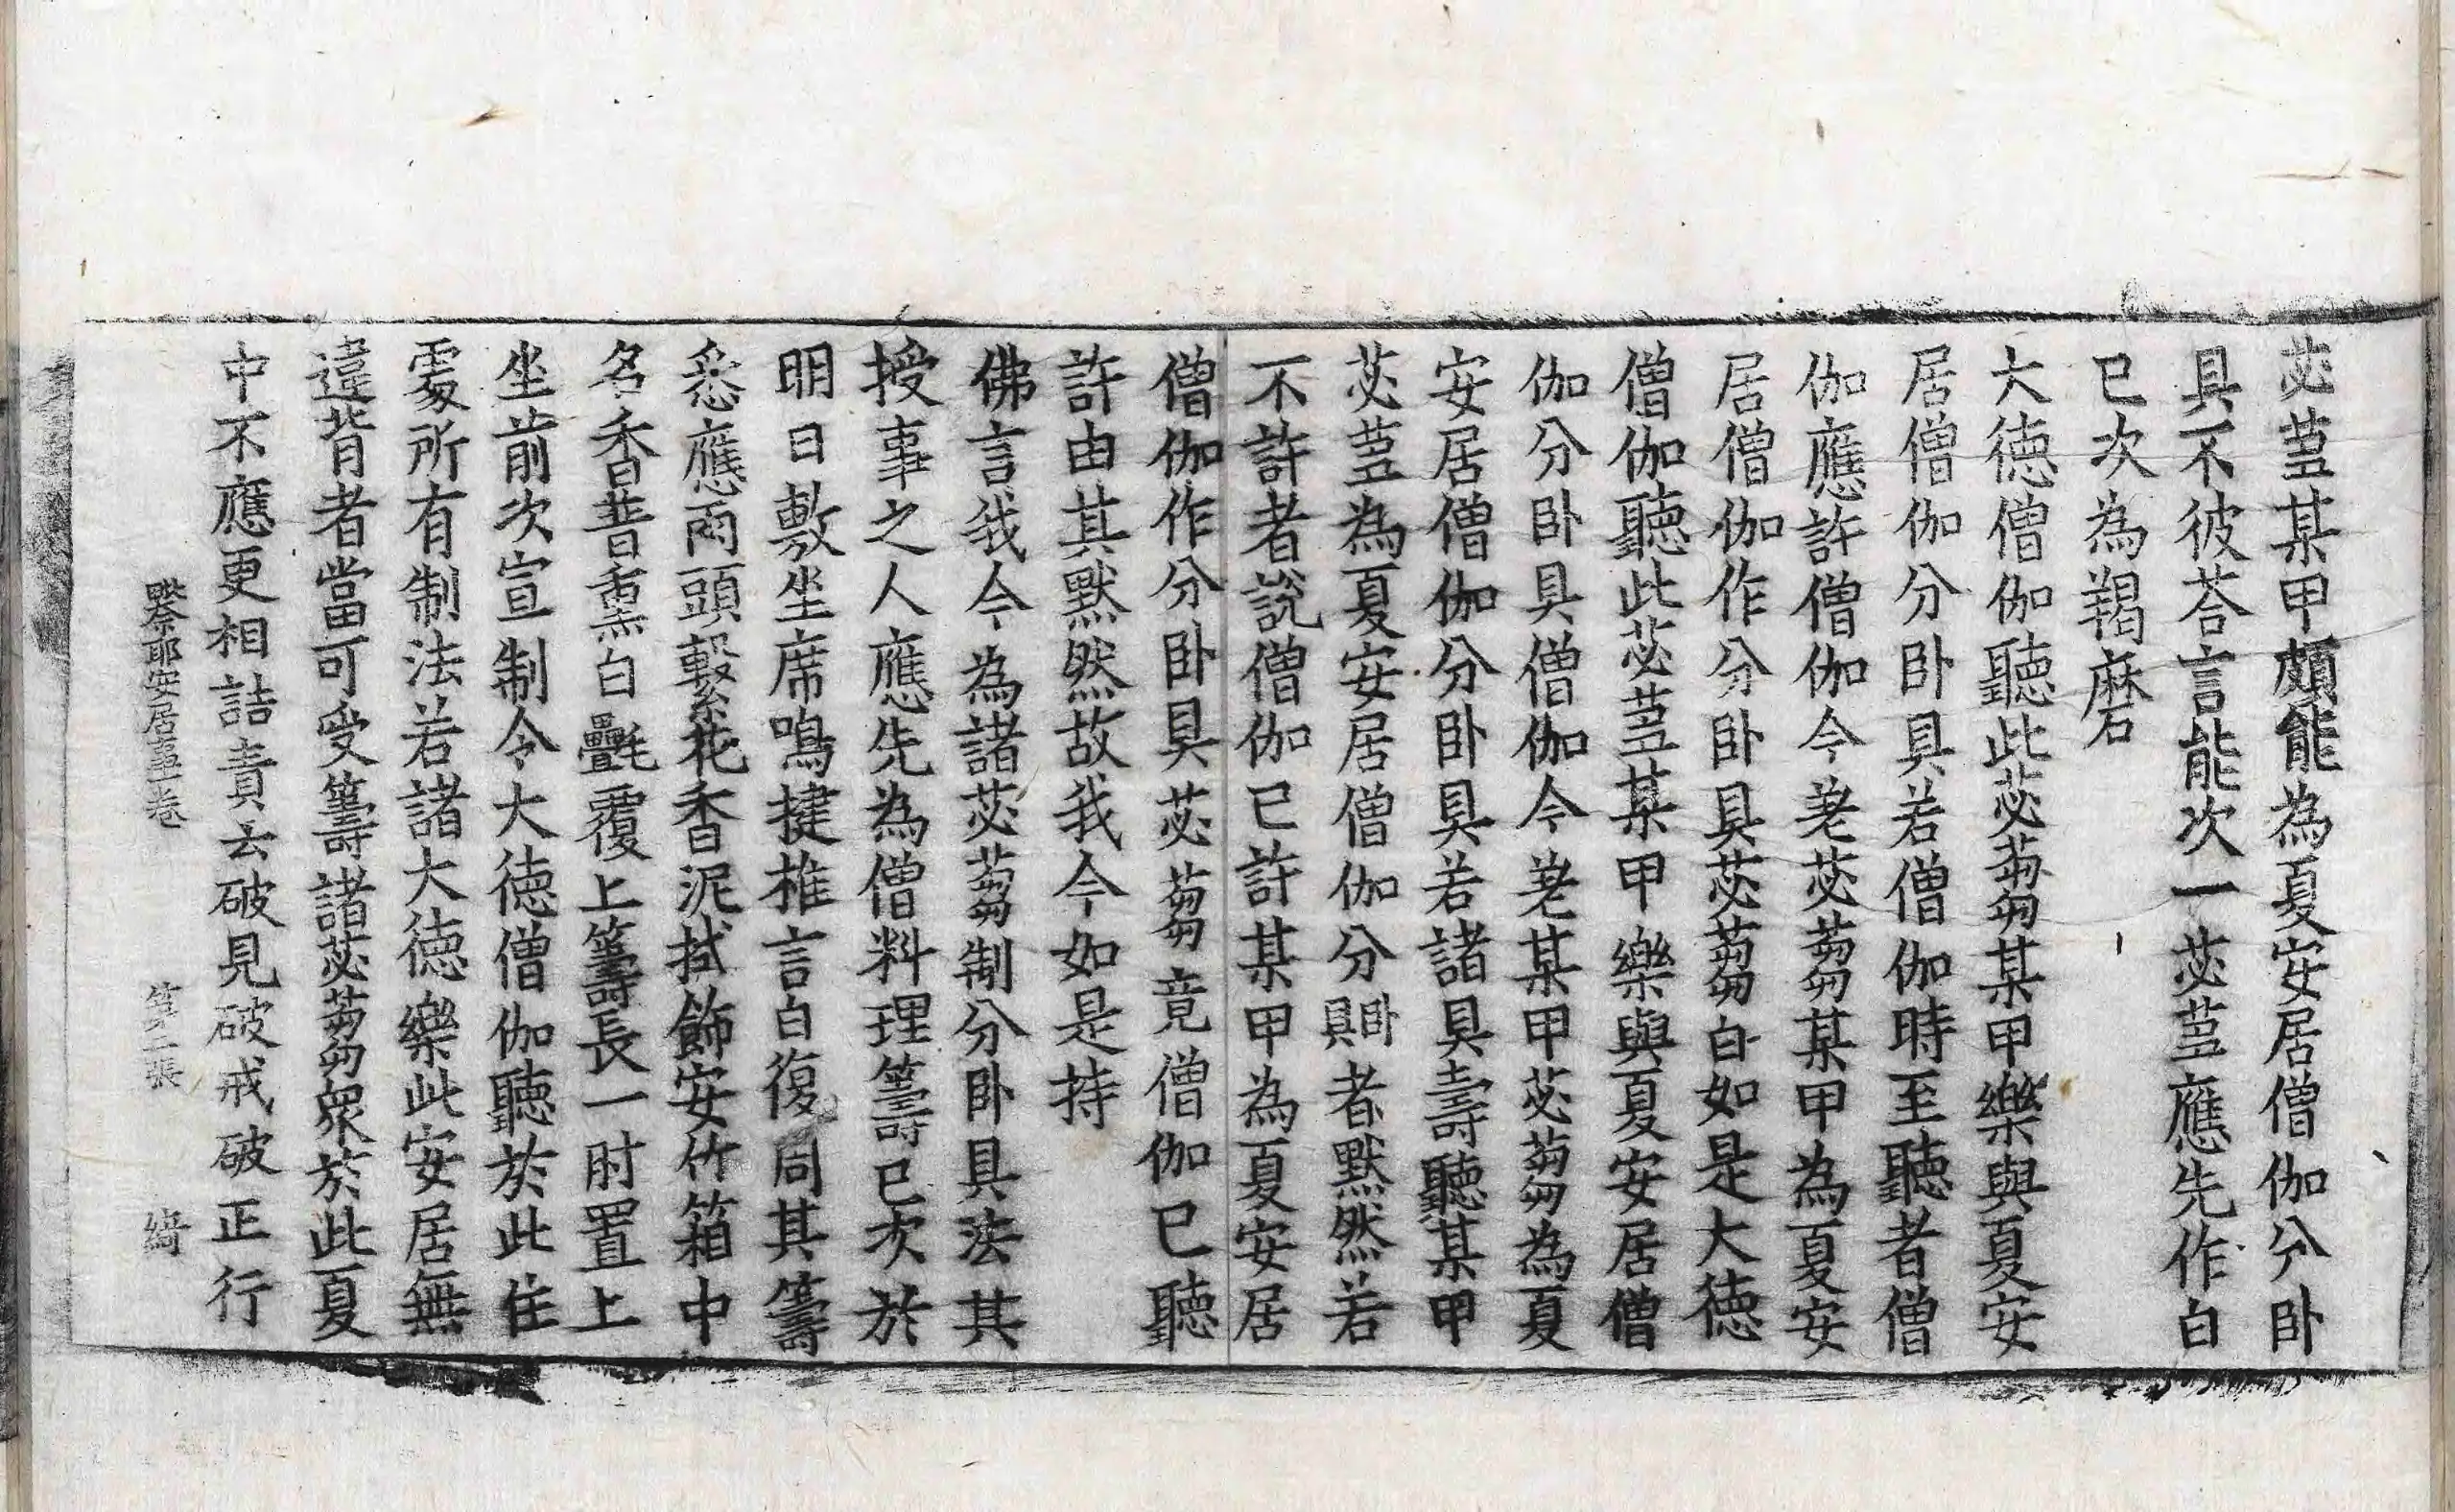 苾蒭某甲頗能為夏安居僧伽分卧
具不彼荅言能次一苾蒭應先作白
已次為羯磨
大德僧伽聽此苾蒭某甲樂與夏安
居僧伽分卧具若僧伽時至聽者僧
伽應許僧伽今差苾蒭某甲為夏安
居僧伽作分卧具苾蒭白如是大德
僧伽聽此苾蒭某甲樂與夏安居僧
伽分卧具僧伽今差某甲苾蒭為夏
安居僧伽分卧具若諸具壽聽某甲
苾蒭為夏安居僧伽分卧具者默然若
不許者說僧伽已許某甲為夏安居
僧伽作分卧具苾蒭竟僧伽已聽
許由其默然故我今如是持
佛言我今為諸苾蒭制分卧具法其
授事之人應先為僧料理籌已次於
明日敷坐席鳴揵椎言白復周其籌
悉應兩頭繫花香泥拭飾安竹箱中
名香普熏白㲲覆上籌長一肘置上
坐前次宣制令大德僧伽聽於此住
處所有制法若諸大德樂此安居無
違背者當可受籌諸苾蒭眾於此夏
中不應更相詰責云破見破戒破正行
毗奈耶安居事一卷　第二張　綺